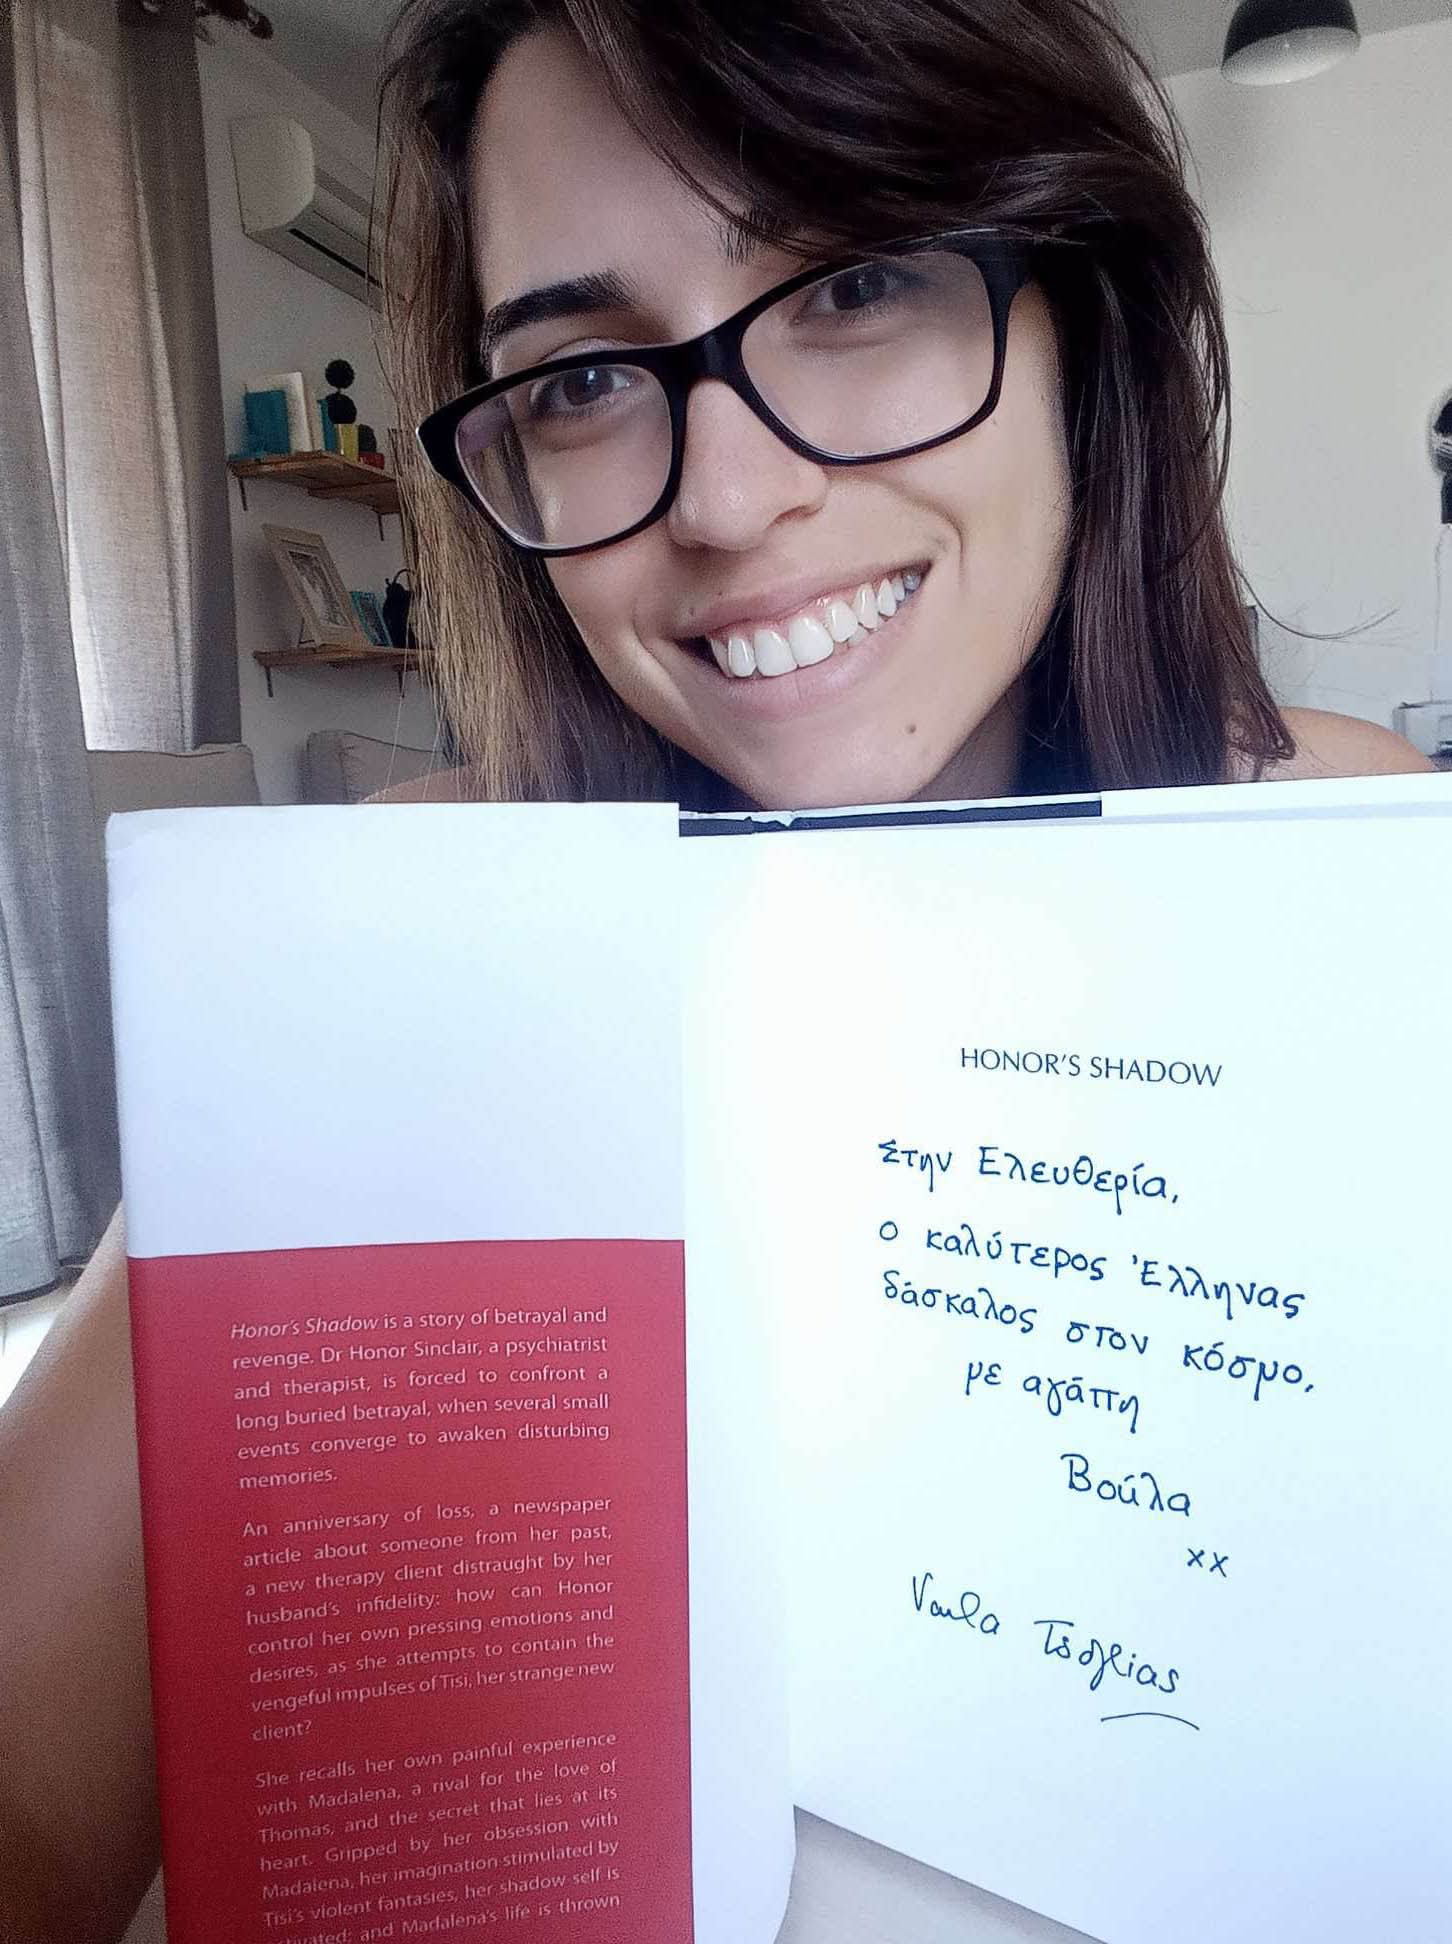 Honor's Shadow is a story of betrayal and
revenge. Dr Honor Sinclair, a psychiatrist
and therapist, is forced to confront a
long buried betrayal, when several small
events converge to awaken disturbing
memories.
An anniversary of loss, a newspaper
article about someone from her past,
a new therapy client distraught by her
husband's infidelity: how can Honor
control her own pressing emotions and
desires, as she attempts to contain the
vengeful impulses of Tisi, her strange new
client?
She recalls her own painful experience
with Madalena, a rival for the love of
Thomas, and the secret that lies at its
heart. Gripped by her obsession with
Madalena, her imagination stimulated by
Tisi's violent fantasies, her shadow self is
and Madalena's life is thrown
HONOR'S SHADOW
Στην Ελευθερία,
ο καλύτερος Έλληνας
δάσκαλος στον κόσμο,
με αγάπη
Βούλα
xx
Voula